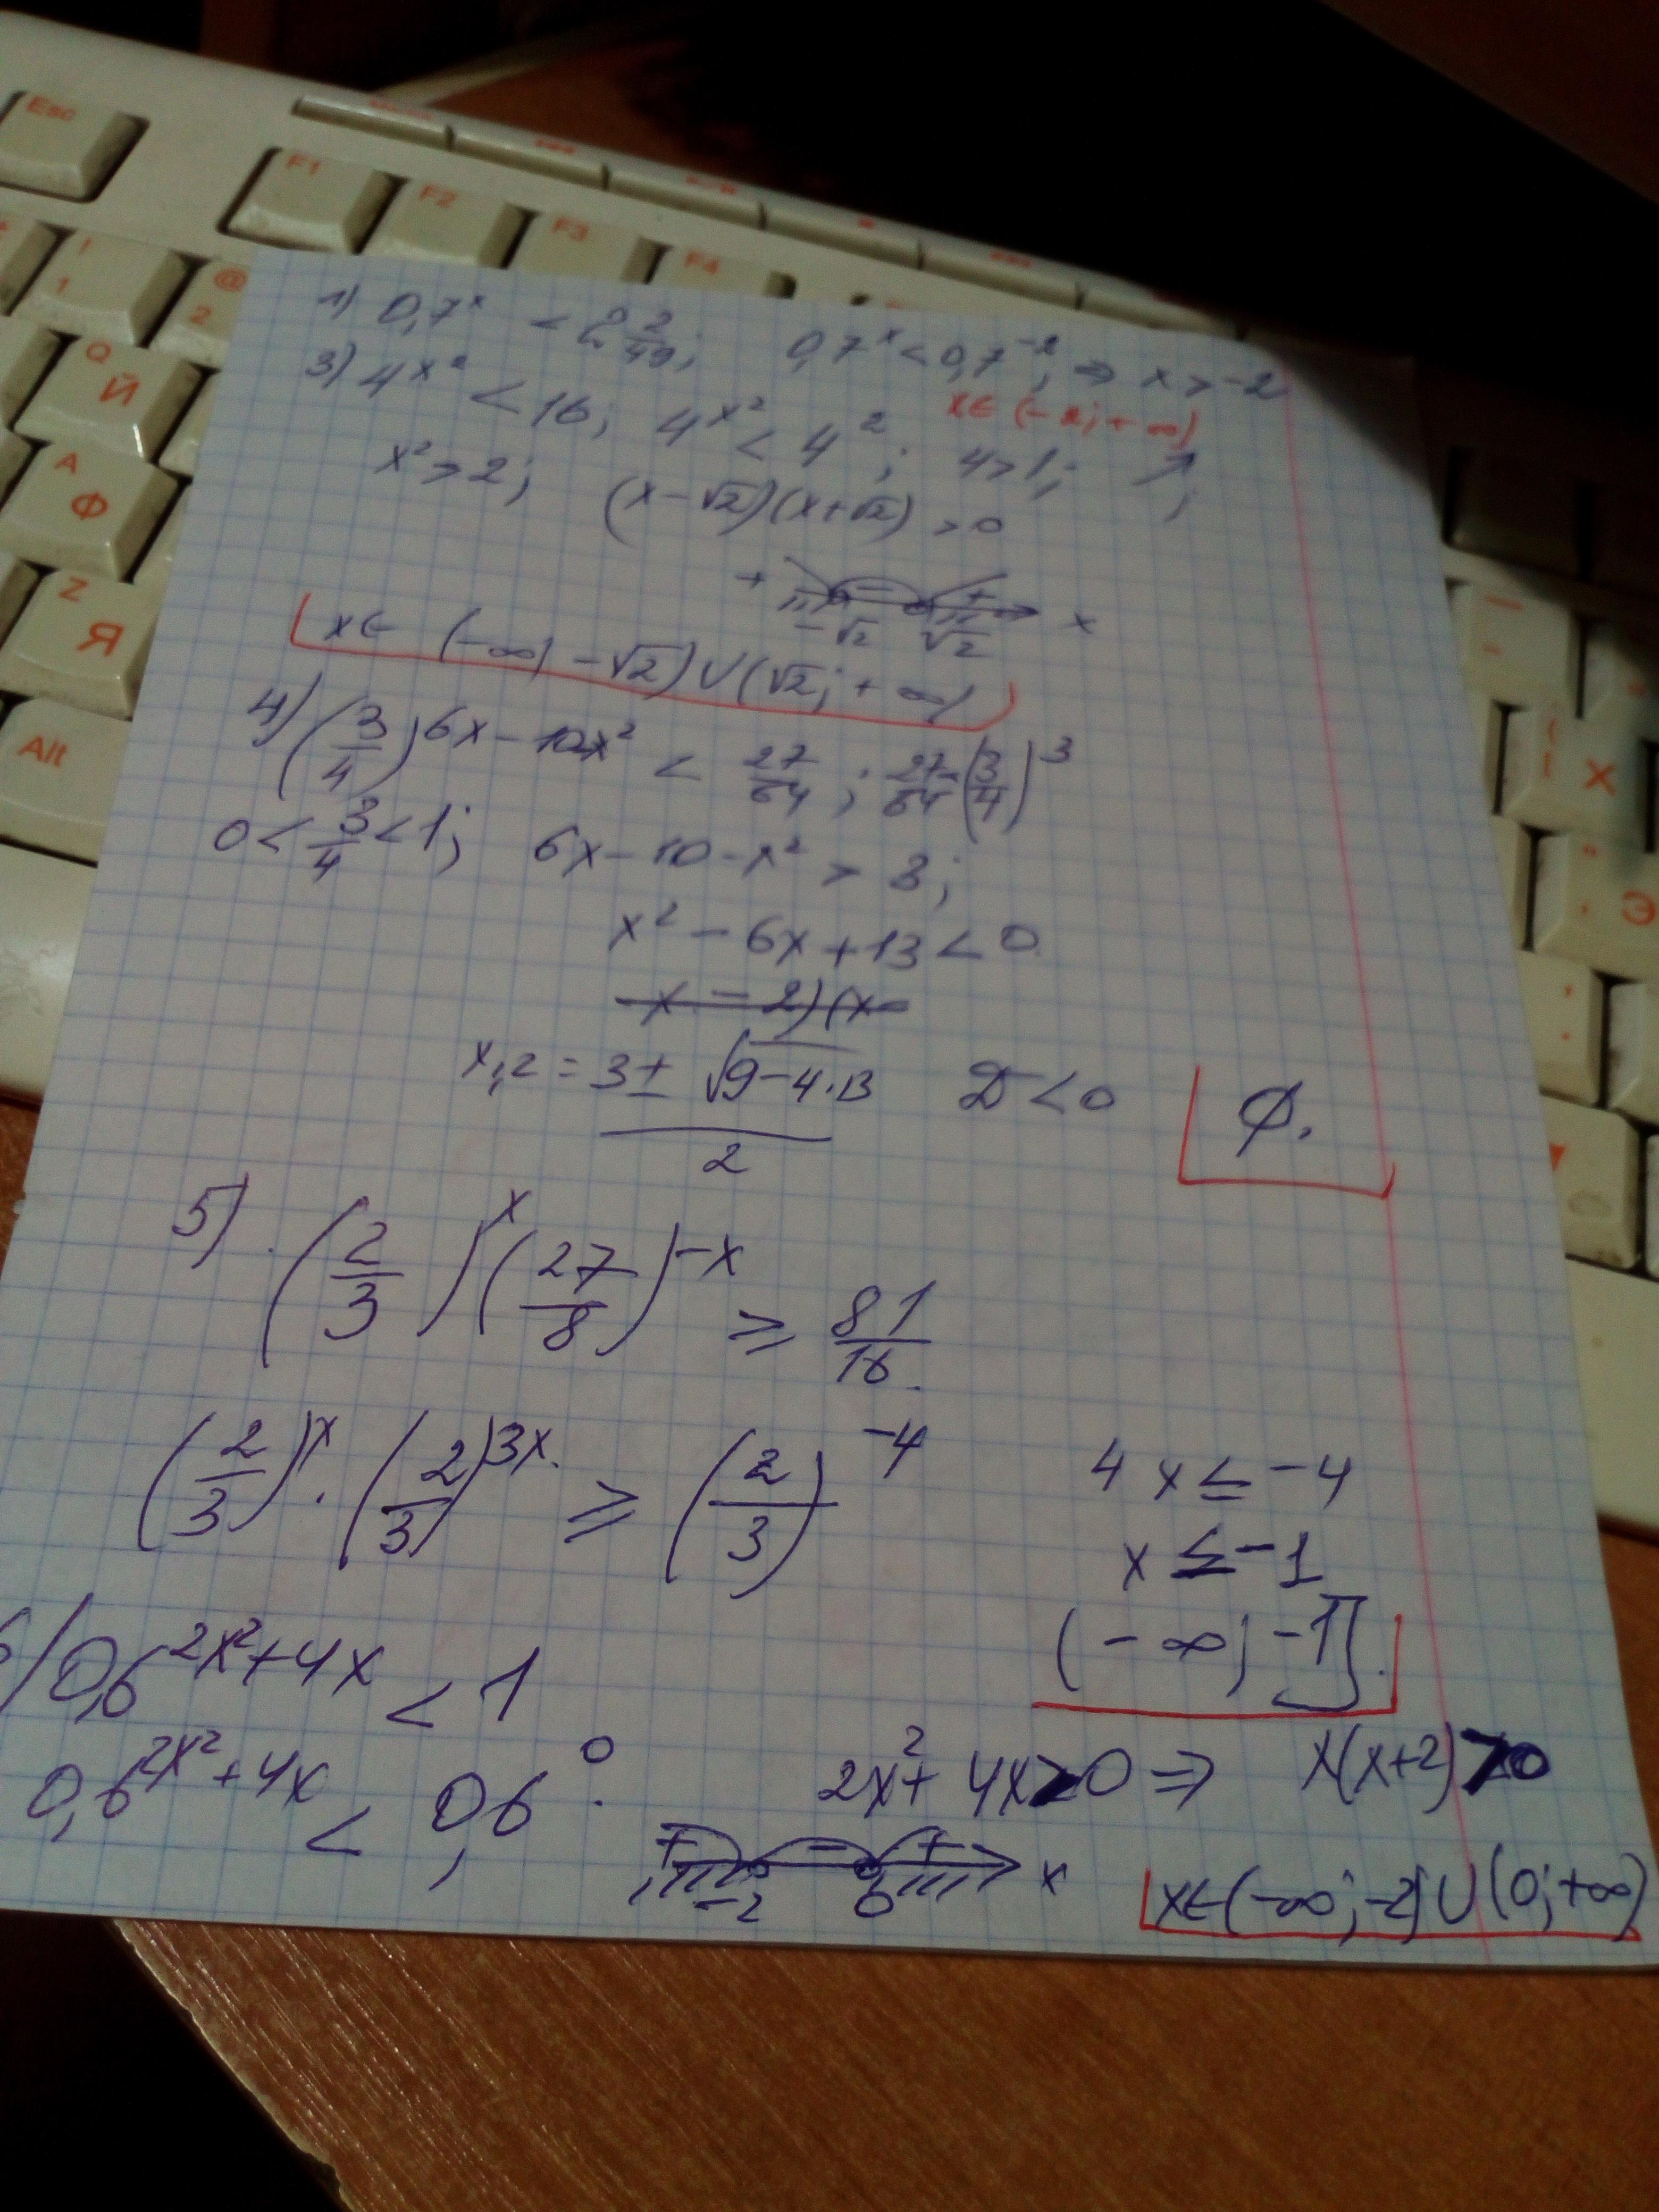 Esc
F1 F2 F3 F4
! 1
@ 2
Q Й
A Ф
Z Я
Alt
Х
Э
1) 0,7ˣ < 2 2/49; 0,7ˣ < 0,7⁻²; ⇒ x > -2
x ∈ (-2; +∞)
3) 4^(x²) < 16; 4^(x²) < 4²; 4>1; ↗;
x² > 2; (x-√2)(x+√2) > 0
+ - + x
-√2 √2
x ∈ (-∞; -√2) ∪ (√2; +∞)
4) (3/4)^(6x-10-x²) < 27/64; 27/64 = (3/4)³
0 < 3/4 < 1; 6x-10-x² > 3;
x² - 6x + 13 < 0
x - 2)(x-
x₁,₂ = (3 ± √(9-4·13))/2 D < 0 ∅.
5) (2/3)ˣ (27/8)⁻ˣ ≥ 81/16.
(2/3)ˣ · (2/3)³ˣ ≥ (2/3)⁻⁴ 4x ≤ -4
x ≤ -1
(-∞; -1].
6) 0,6^(2x²+4x) < 1
0,6^(2x²+4x) < 0,6⁰. 2x²+4x>0 ⇒ x(x+2)>0
+ - + x
-2 0
x∈(-∞; -2) ∪ (0; +∞)